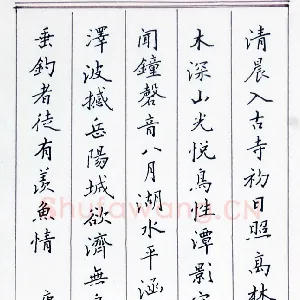 清晨入古寺初日照高林
木深山光悦鳥性潭影空
聞鐘磬音八月湖水平涵
澤波撼岳陽城欲濟無
垂釣者徒有羨魚情
Shufawang.CN